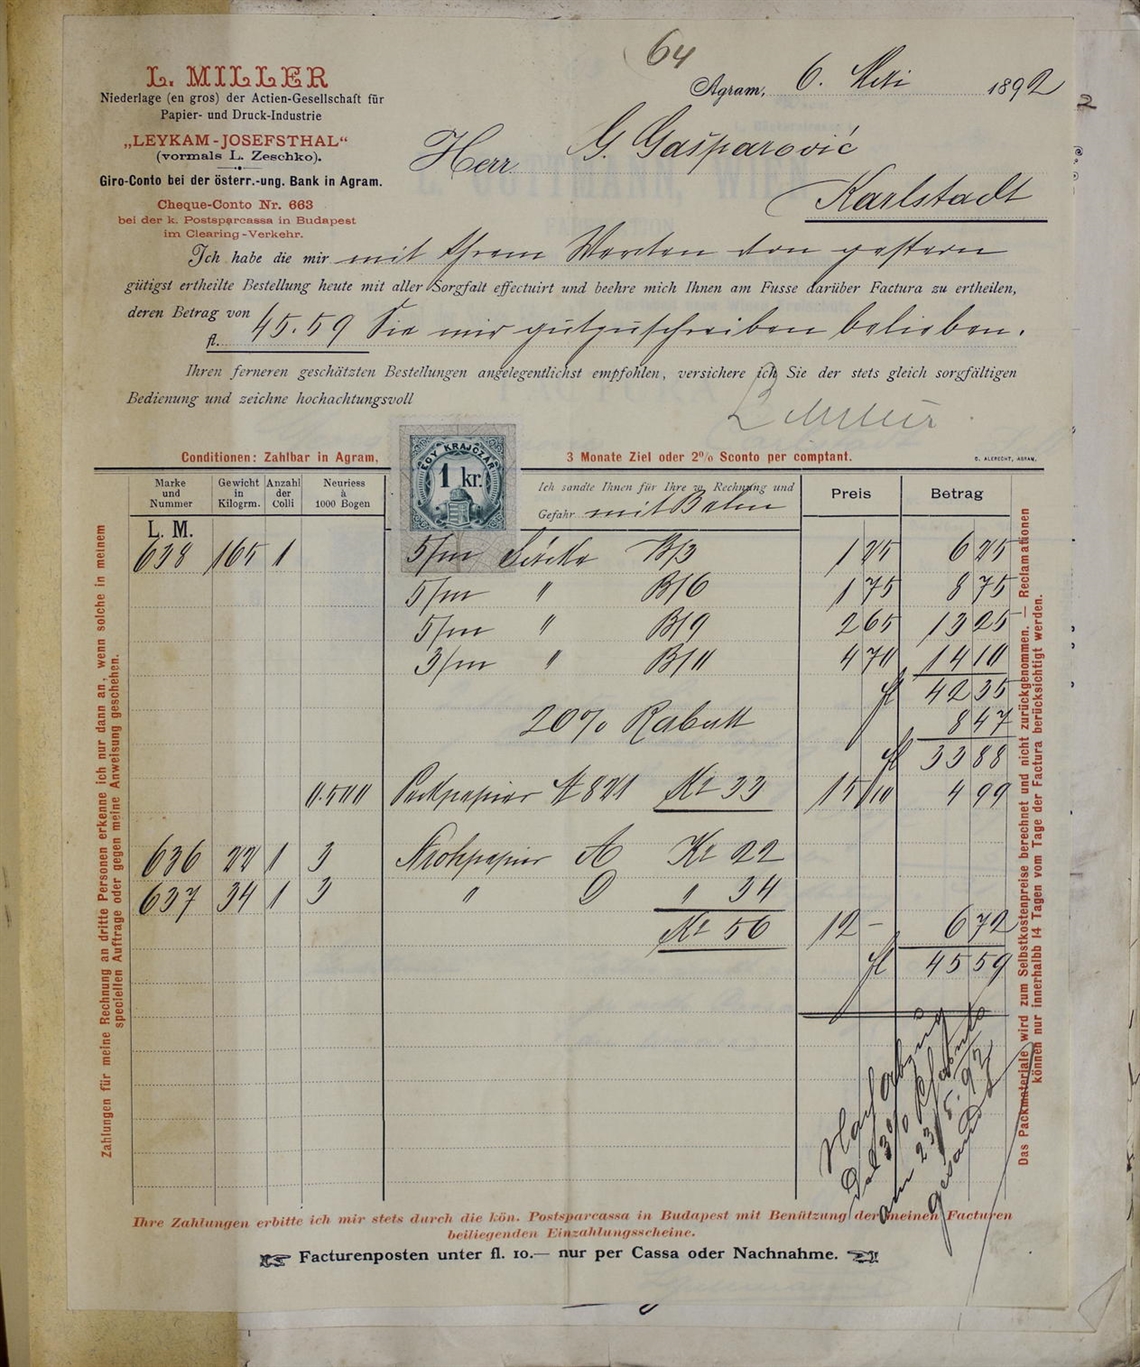 64
L. MILLER
Niederlage (en gros) der Actien-Gesellschaft für
Papier- und Druck-Industrie
„LEYKAM-JOSEFSTHAL“
(vormals L. Zeschko).
Giro-Conto bei der österr.-ung. Bank in Agram.
Cheque-Conto Nr. 663
bei der k. Postsparcassa in Budapest
im Clearing-Verkehr.
Agram, 6. Mai 1892
2
Herr G. Gašparović
Karlstadt
Ich habe die mir mit Ihrem Werten von gestern
gütigst ertheilte Bestellung heute mit aller Sorgfalt effectuirt und beehre mich Ihnen am Fusse darüber Factura zu ertheilen,
deren Betrag von
fl. 45.59 Sie mir gutzuschreiben belieben.
Ihren ferneren geschätzten Bestellungen angelegentlichst empfohlen, versichere ich Sie der stets gleich sorgfältigen
Bedienung und zeichne hochachtungsvoll
L Miller
EGY KRAJCZÁR
1 kr.
Conditionen: Zahlbar in Agram, 3 Monate Ziel oder 2% Sconto per comptant.
C. ALBRECHT, AGRAM.
Marke und Nummer
Gewicht in Kilogrm.
Anzahl der Colli
Neuriess à 1000 Bogen
Ich sandte Ihnen für Ihre w. Rechnung und
Gefahr mit Bahn
Preis
Betrag
L. M.
638 165 1 5/m Säcke B/3 1 25 6 25
5/m " B/6 1 75 8 75
5/m " B/9 2 65 13 25
3/m " B/11 4 70 14 10
fl 42 35
20% Rabatt 8 47
fl 33 88
0.500 Packpapier № 821 Ko 33 15/10 4 99
636 22 1 3 Strohpapier A Ko 22
637 34 1 3 " D " 34
Ko 56 12 - 6 72
fl 45 59
Nach Abzug
am 23/5. 92
gesandt
Zahlungen für meine Rechnung an dritte Personen erkenne ich nur dann an, wenn solche in meinem
speciellen Auftrage oder gegen meine Anweisung geschehen.
Das Packmateriale wird zum Selbstkostenpreise berechnet und nicht zurückgenommen. — Reclamationen
können nur innerhalbb 14 Tagen vom Tage der Factura berücksichtigt werden.
Ihre Zahlungen erbitte ich mir stets durch die kön. Postsparcassa in Budapest mit Benützung der meinen Facturen
beiliegenden Einzahlungsscheine.
Facturenposten unter fl. 10.— nur per Cassa oder Nachnahme.